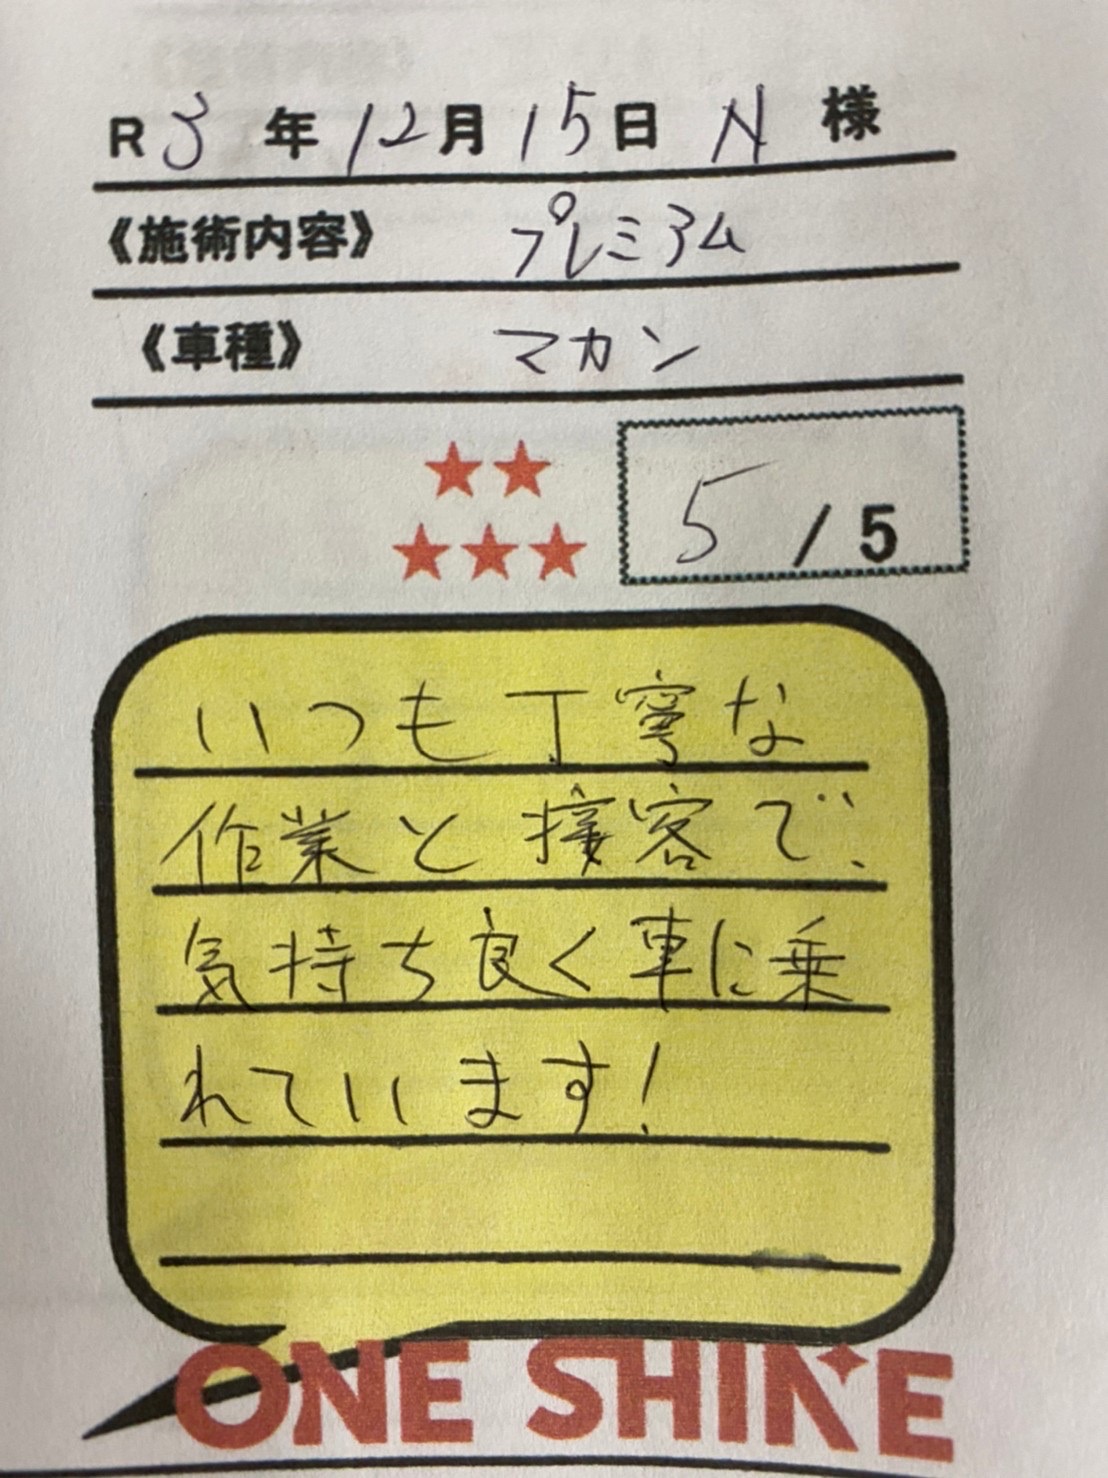 R3年12月15日 N 様
《施術内容》 プレミアム
《車種》 マカン
5/5
いつも丁寧な
作業と接客で、
気持ち良く車に乗
れています!
ONE SHINE